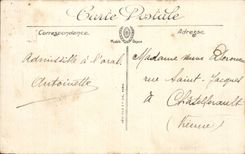 Carte Postale
Correspondance
Adresse
Admissible à l'oral
Antoinette
Madame
rue Saint-Jacques
à Châtellerault
(Vienne)